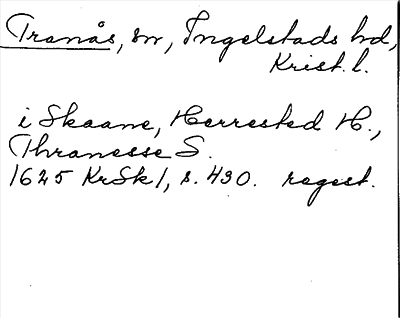 Tranås, sn, Ingelstads hd,
Krist. l.
i Skaane, Herrested H.,
Thranesse S.
1625 KrSk 1, s. 430. regest.